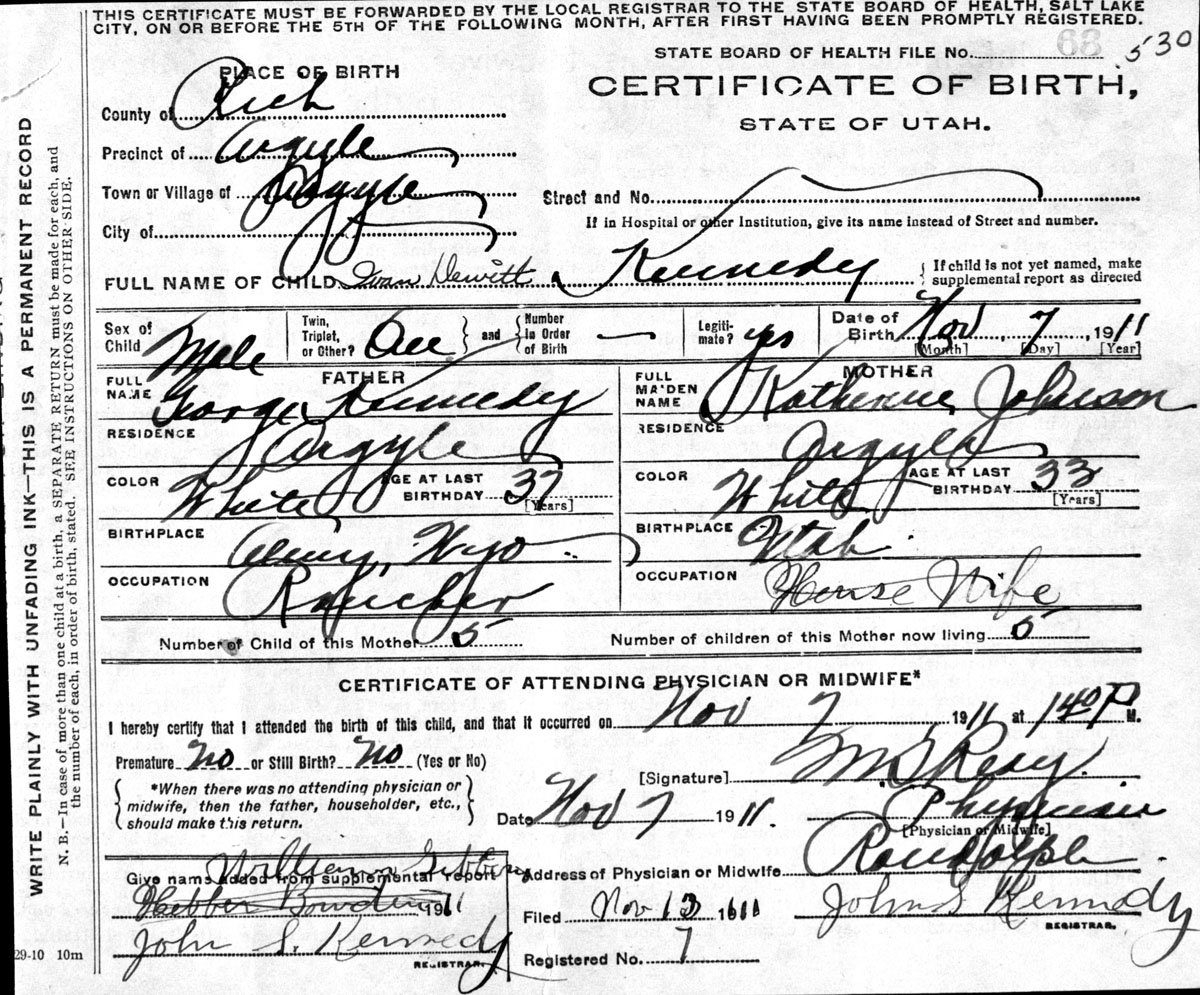 THIS CERTIFICATE MUST BE FORWARDED BY THE LOCAL REGISTRAR TO THE STATE BOARD OF HEALTH, SALT LAKE
CITY, ON OR BEFORE THE 5TH OF THE FOLLOWING MONTH, AFTER FIRST HAVING BEEN PROMPTLY REGISTERED.
STATE BOARD OF HEALTH FILE No. 68 530
PLACE OF BIRTH
CERTIFICATE OF BIRTH,
STATE OF UTAH.
County of Rich
Precinct of Argyle
Town or Village of Argyle
Street and No.
City of
If in Hospital or other Institution, give its name instead of Street and number.
FULL NAME OF CHILD Ivan Dewitt Kennedy { If child is not yet named, make
supplemental report as directed
Sex of Child Male
Twin, Triplet, or Other? One } and { Number in Order of Birth —
Legiti-mate? yes
Date of Birth Nov 7, 1911
[Month] [Day] [Year]
FATHER
FULL NAME George Kennedy
MOTHER
FULL MAIDEN NAME Katherine Johnson
RESIDENCE Argyle
RESIDENCE Argyle
COLOR White AGE AT LAST BIRTHDAY 37 [Years]
COLOR White AGE AT LAST BIRTHDAY 33 [Years]
BIRTHPLACE Almy, Wyo
BIRTHPLACE Utah
OCCUPATION Rancher
OCCUPATION House Wife
Number of Child of this Mother 5
Number of children of this Mother now living 5
CERTIFICATE OF ATTENDING PHYSICIAN OR MIDWIFE*
I hereby certify that I attended the birth of this child, and that it occurred on Nov 7, 1911 at 140 P M.
Premature No or Still Birth? No (Yes or No)
[Signature]
*When there was no attending physician or
midwife, then the father, householder, etc.,
should make this return.
Date Nov 7 1911.
Physician
[Physician or Midwife]
Address of Physician or Midwife Randolph
William
Give name added from supplemental report
Hebber Bowden 1911
John S. Kennedy
REGISTRAR.
Filed Nov 13 1911
John S Kennedy
REGISTRAR.
Registered No. 7
29-10 10m
WRITE PLAINLY WITH UNFADING INK—THIS IS A PERMANENT RECORD
N. B.—In case of more than one child at a birth, a SEPARATE RETURN must be made for each, and
the number of each, in order of birth, stated. SEE INSTRUCTIONS ON OTHER SIDE.